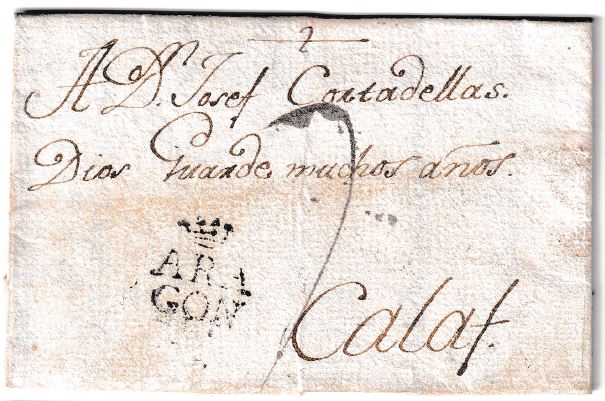 A D.n Josef Cortadellas.
Dios Guarde muchos años.
7
ARA
GON
Calaf.